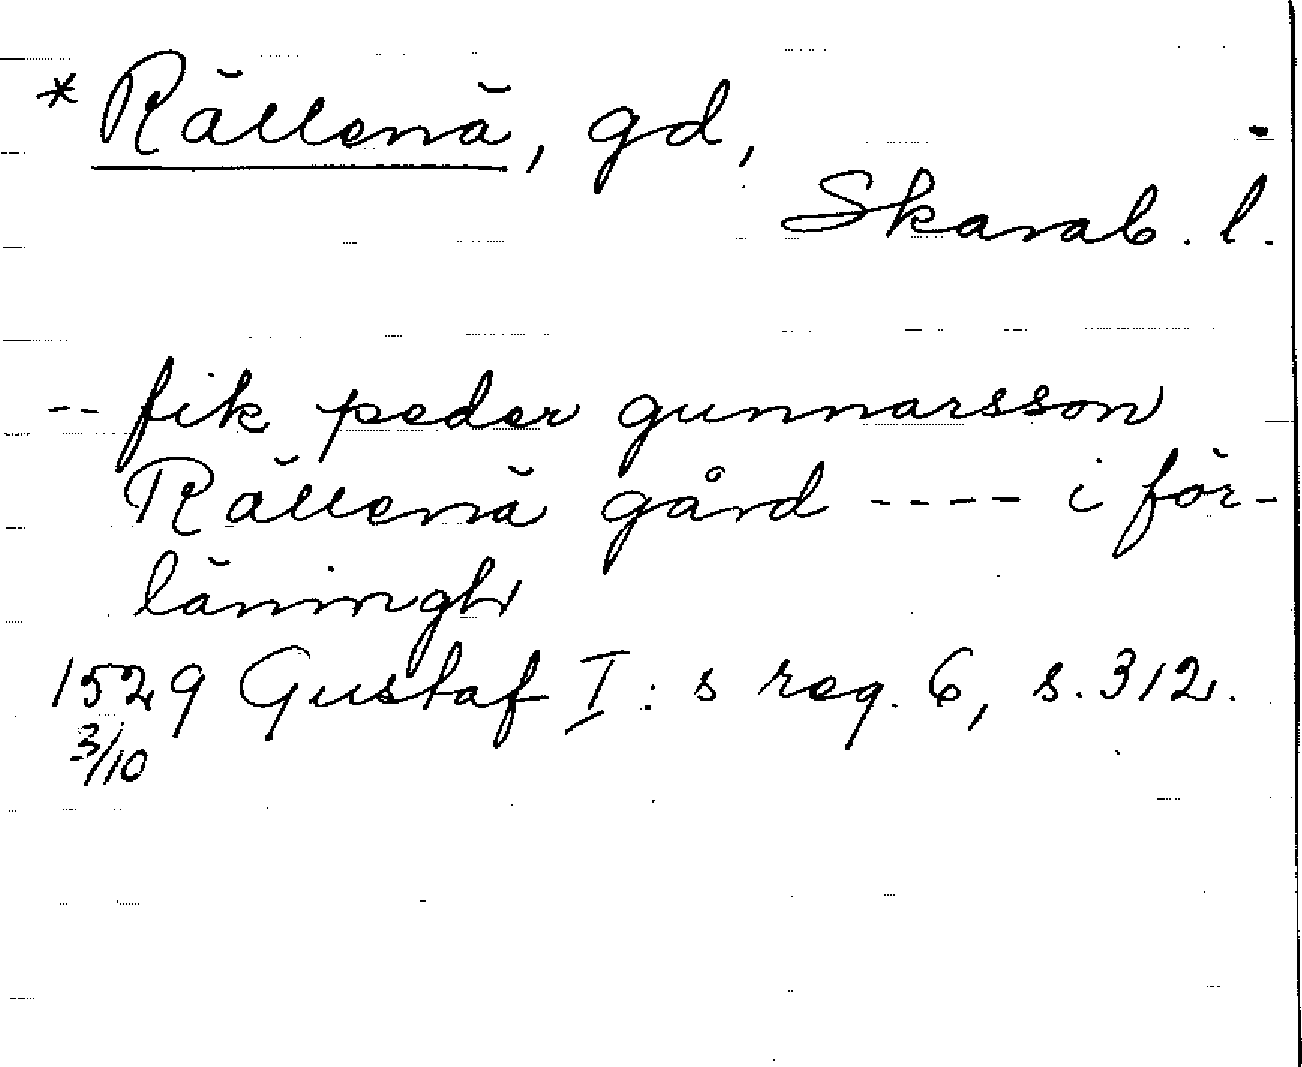 * Rällenä, gd,
Skarab. l.
-- fik peder gunnarsson
Rällenä gård ---- i för-
läningh
1529 Gustaf I:s reg. 6, s. 312.
3/10